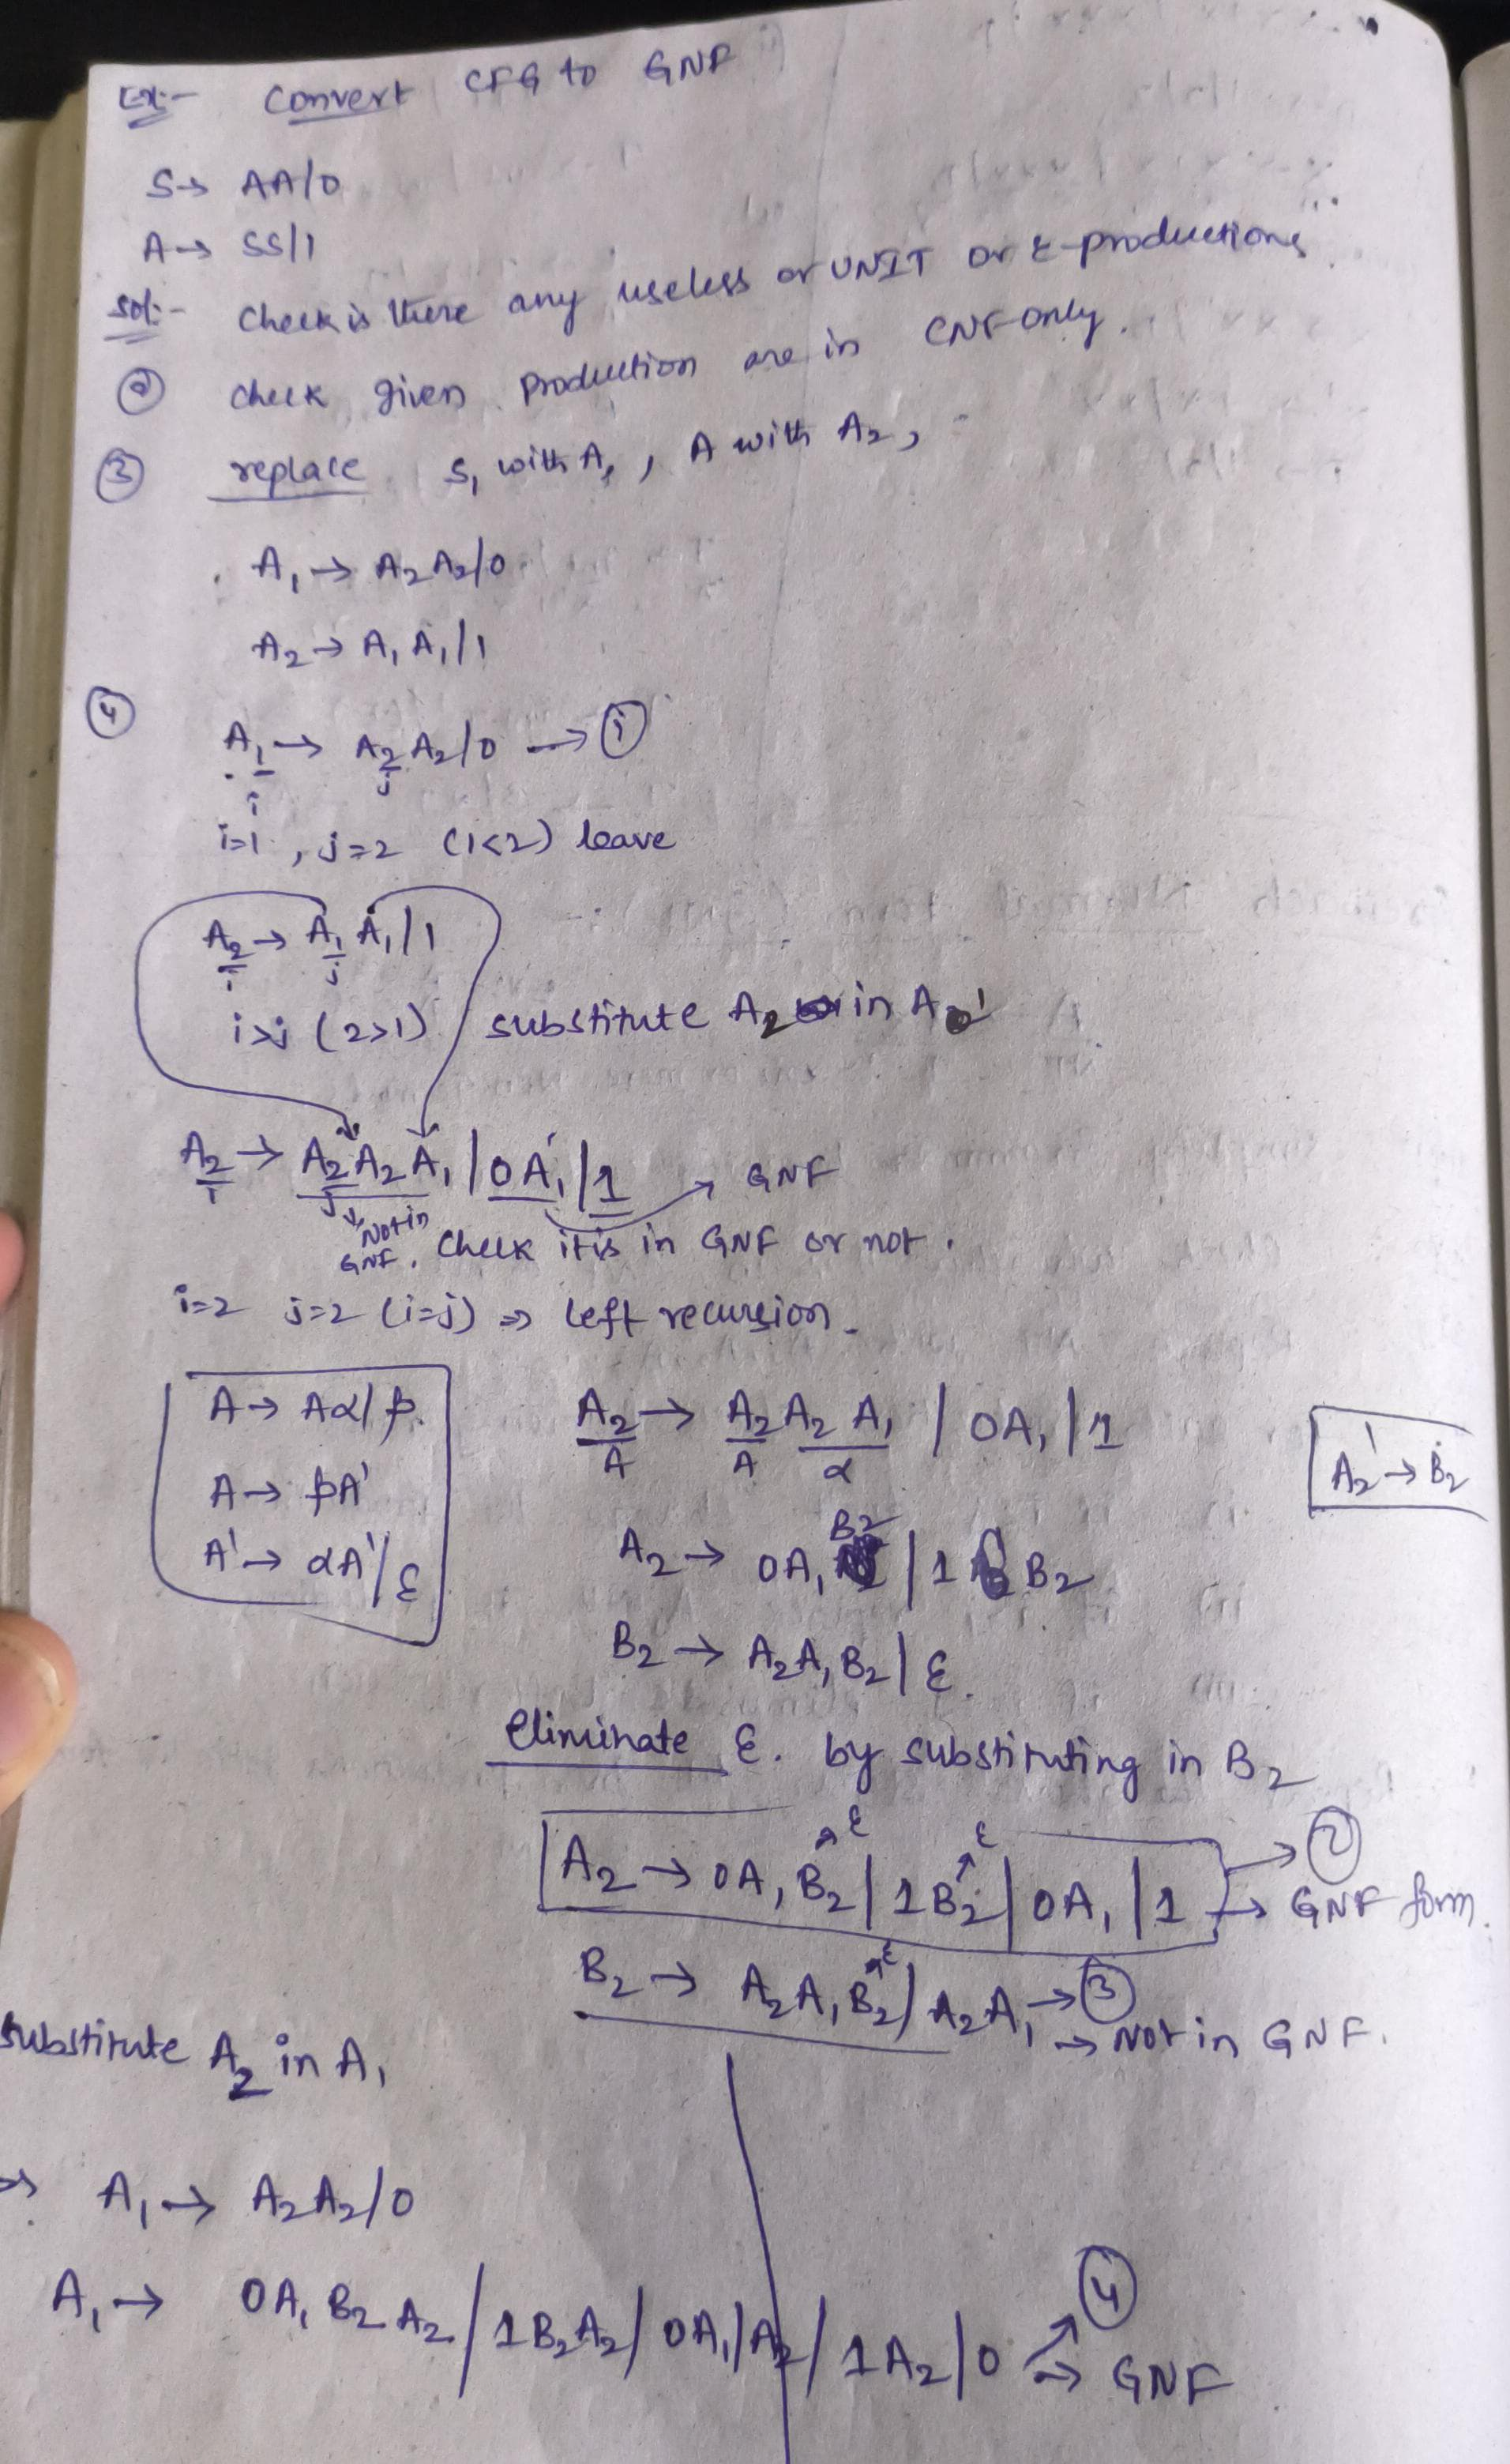 Ex:- Convert CFG to GNF
S→ AA/0
A→ SS/1
Sol:- Check is there any useless or UNIT or ε-productions.
② Check given production are in CNF only.
③ replace S, with A₁, A with A₂,
A₁→ A₂A₂/0
A₂→ A₁A₁/1
④ A₁→ A₂A₂/0 → ①
i j
i=1, j=2 (1<2) leave
A₂→ A₁A₁/1
i j
i>j (2>1) substitute A₂ in A₁
A₂→ A₂A₂A₁/0A₁/1 → GNF
i j
Not in GNF. Check it is in GNF or not.
i=2 j=2 (i=j) ⇒ left recursion.
A→ Aα/β
A→ βA'
A'→ αA'/ε
A₂→ A₂A₂A₁ / 0A₁/1
A A α
A₂'→B₂
A₂→ 0A₁B₂/1B₂
B₂→ A₂A₁B₂/ε.
eliminate ε. by substituting in B₂
ε ε
A₂→0A₁B₂/1B₂/0A₁/1 → ②
→ GNF form.
ε
B₂→ A₂A₁B₂/A₂A₁→③
→ Not in GNF.
substitute A₂ in A₁
⇒ A₁→ A₂A₂/0
A₁→ 0A₁B₂A₂/1B₂A₂/0A₁/A₂/1A₂/0 → ④
→ GNF